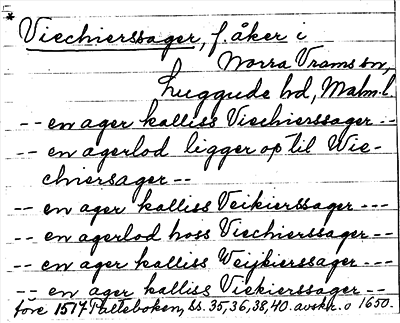 * Viechierssager, f. åker i
Norra Vrams sn,
Luggude hd, Malm.l.
-- en ager kalliss Viechierssager --
-- en agerlod ligger op til Wie-
chiersager --
-- en ager kalliss Veikierssager ---
-- en agerlod hoss Viechierssager --
-- en ager kalliss Weijkierssager ---
-- en ager kalliss Viekierssager --
före 1517 Palteboken, ss. 35, 36, 38, 40. avskr. o 1650.